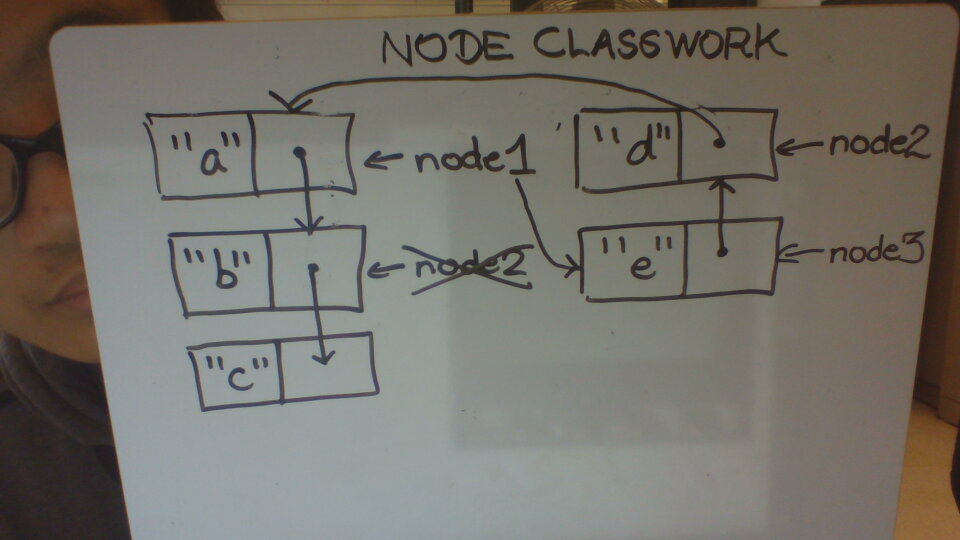 NODE CLASSWORK
"a" node1
"d" node2
"b" node2
"e" node3
"c"